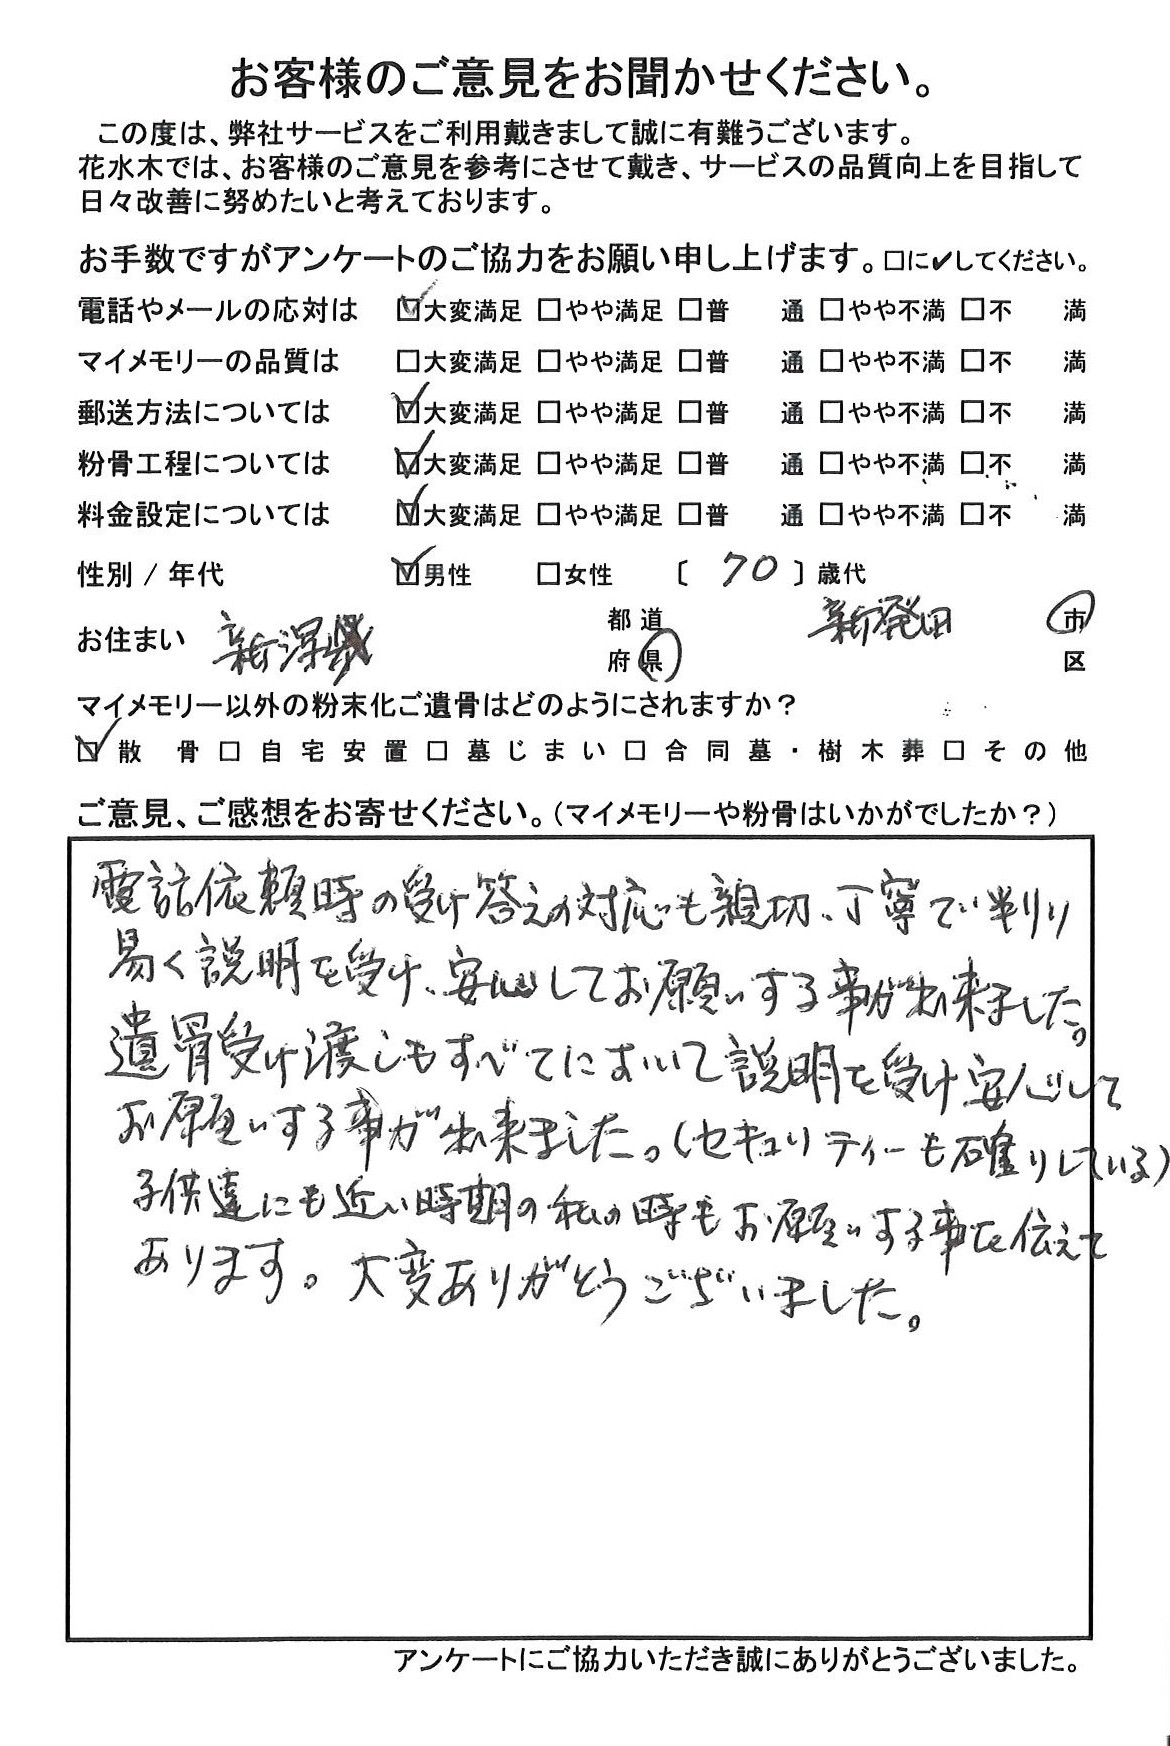 お客様のご意見をお聞かせください。
この度は、弊社サービスをご利用戴きまして誠に有難うございます。
花水木では、お客様のご意見を参考にさせて戴き、サービスの品質向上を目指して
日々改善に努めたいと考えております。
お手数ですがアンケートのご協力をお願い申し上げます。□に✔してください。
電話やメールの応対は ☑大変満足 □やや満足 □普 通 □やや不満 □不 満
マイメモリーの品質は □大変満足 □やや満足 □普 通 □やや不満 □不 満
郵送方法については ☑大変満足 □やや満足 □普 通 □やや不満 □不 満
粉骨工程については ☑大変満足 □やや満足 □普 通 □やや不満 □不 満
料金設定については ☑大変満足 □やや満足 □普 通 □やや不満 □不 満
性別 / 年代 ☑男性 □女性 〔 70 〕歳代
お住まい 新潟県 都道府県 新発田 市区
マイメモリー以外の粉末化ご遺骨はどのようにされますか？
☑散 骨 □自宅安置 □墓じまい □合同墓・樹木葬 □その他
ご意見、ご感想をお寄せください。（マイメモリーや粉骨はいかがでしたか？）
電話依頼時の受け答えの対応も親切、丁寧で判り
易く説明を受け、安心してお願いする事が出来ました。
遺骨受け渡しもすべてにおいて説明を受け安心して
お願いする事が出来ました。（セキュリティーも確りしている）
子供達にも近い時期の私の時もお願いする事を伝えて
あります。大変ありがとうございました。
アンケートにご協力いただき誠にありがとうございました。